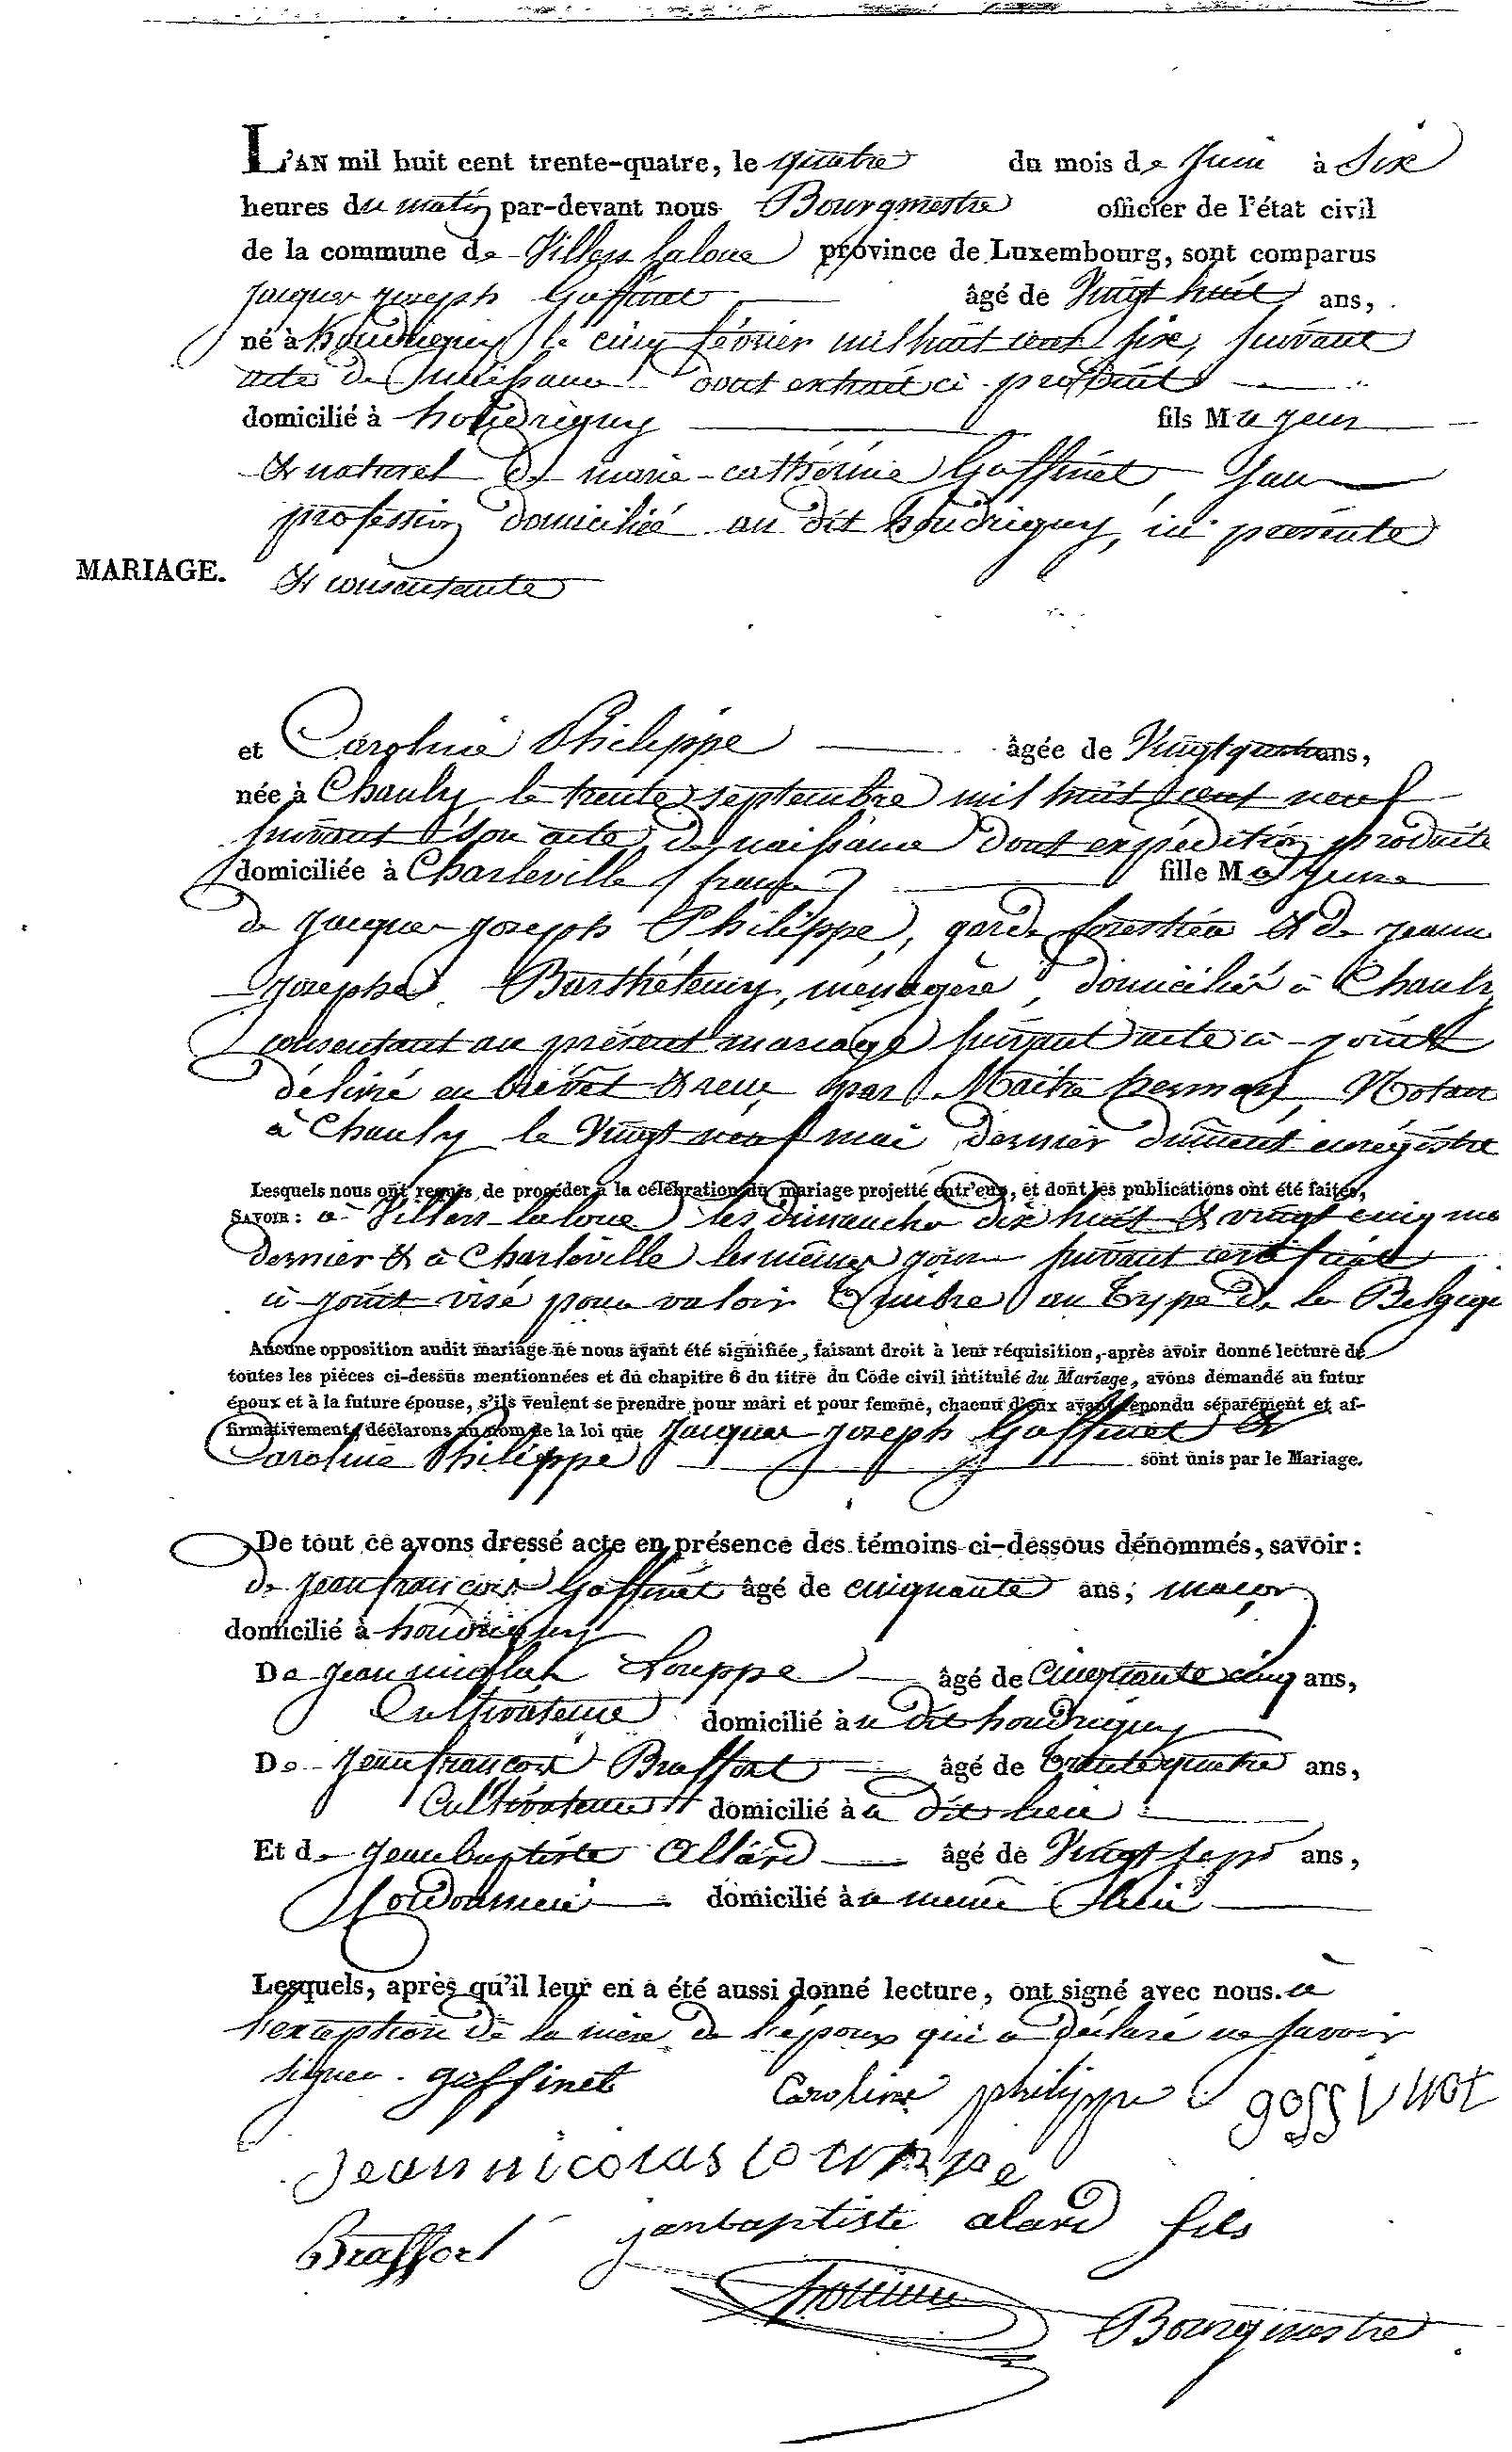 L'AN mil huit cent trente-quatre, le quatre du mois de Juin à Six
heures du matin par-devant nous Bourgmestre officier de l'état civil
de la commune de Villers laloue province de Luxembourg, sont comparus
Jacques Joseph Goffinet âgé de Vingt huit ans,
né à houdrigny le cinq février mil huit cent six, suivant
acte de naissance dont extrait ci produit
domicilié à houdrigny fils Majeur
& naturel de marie-cathérine Goffinet, San
profession domiciliée au dit houdrigny, ici présente
MARIAGE.
& consentante
et Caroline Philippe âgée de Vingt quatre ans,
née à Chauly le trente septembre mil huit cent neuf
suivant son acte de naissance dont expédition produite
domiciliée à Charleville (france) fille Majeure
de Jacques Joseph Philippe, garde forestier & de jeanne
josephe Barthélemy, ménagère, domiciliés à Chauly
consentant au présent mariage suivant acte ci-joint
délivré en brévet & reçu par Maitre Notair
à Chauly le Vingt neuf mai dernier dûment enrégistré
Lesquels nous ont requis de procéder à la célébration du mariage projetté entr'eux, et dont les publications ont été faites,
SAVOIR : à Villers-laloue les dimanches dix huit & vingt cinq mai
dernier & à Charleville les mêmes jours suivant certificat
ci-joint visé pour valoir timbre au type de la Belgique
Aucune opposition audit mariage ne nous ayant été signifiée, faisant droit à leur réquisition, après avoir donné lecture de
toutes les pièces ci-dessus mentionnées et du chapitre 6 du titre du Code civil intitulé du Mariage, avons demandé au futur
époux et à la future épouse, s'ils veulent se prendre pour mari et pour femme, chacun d'eux ayant répondu séparément et af-
firmativement, déclarons au nom de la loi que Jacques Joseph Goffinet &
Caroline Philippe sont unis par le Mariage.
De tout ce avons dressé acte en présence des témoins ci-dessous dénommés, savoir :
de jean françois Goffinet âgé de cinquante ans, maçon
domicilié à houdrigny
De jean nicolas Louppe âgé de Cinquante cinq ans,
Cultivateur domicilié au dit houdrigny
De Jean françois Braffort âgé de trente quatre ans,
Cultivateur domicilié au dit lieu
Et de jean baptiste Allard âgé de Vingt sept ans,
Cordonnier domicilié au même lieu
Lesquels, après qu'il leur en a été aussi donné lecture, ont signé avec nous. à
l'exception de la mère de l'époux qui a déclaré ne savoir
signer. goffinet Caroline philippe goffinet
jean nicolas louppe
Braffort janbaptiste alard fils
Bourgmestre